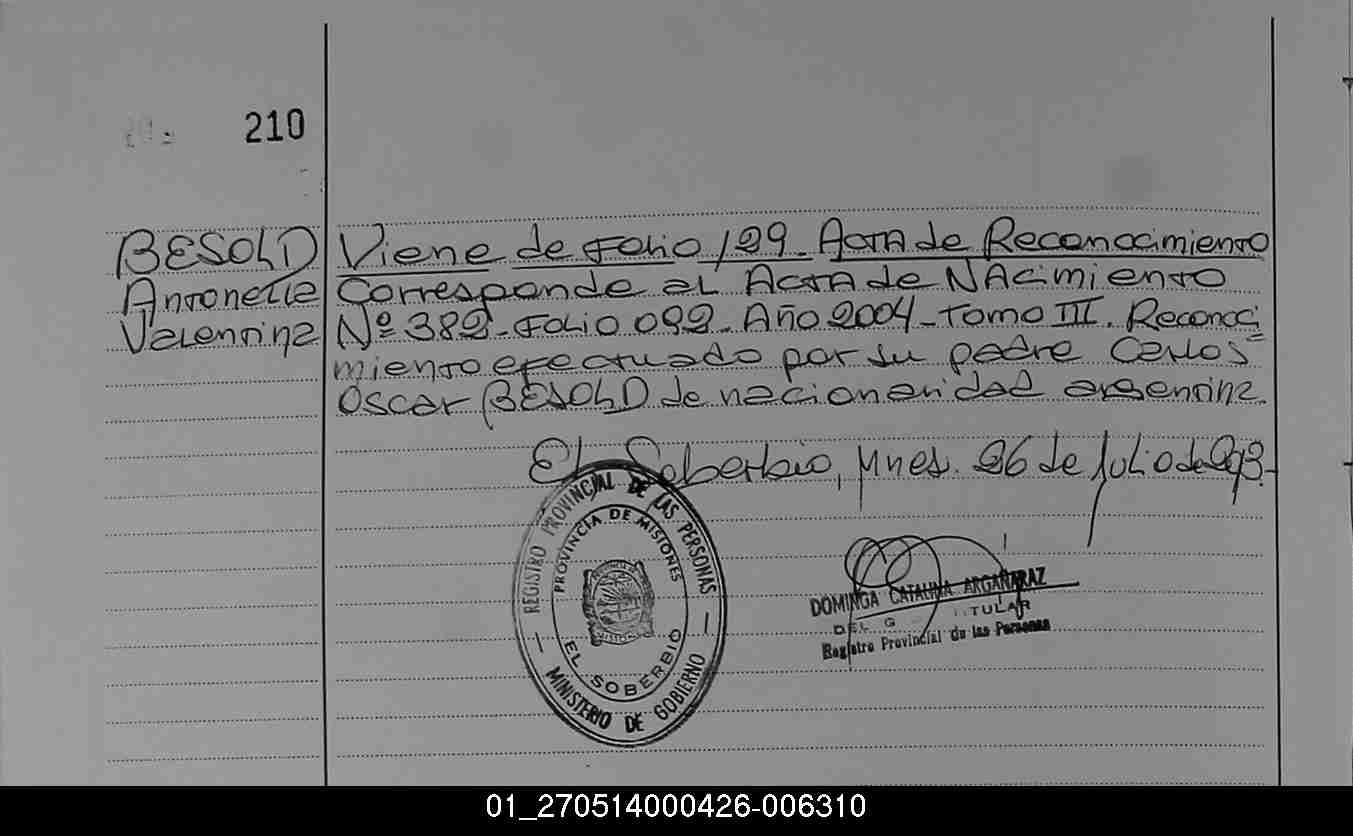 210
BESOLD
Antonella
Valentina
Viene de Folio 129_ Acta de Reconocimiento
Corresponde al Acta de Nacimiento
Nº 382_Folio 092_Año 2004_Tomo III. Reconoci=
miento efectuado por su padre Carlos
Oscar BESOLD de nacionalidad argentina.
El Soberbio, Mnes. 26 de Julio de
REGISTRO PROVINCIAL DE LAS PERSONAS
PROVINCIA DE MISIONES
EL SOBERBIO
MINISTERIO DE GOBIERNO
DOMINGA CATALINA ARGAÑARAZ
DEL G TULAR
Registro Provincial de las Personas
01_270514000426-006310